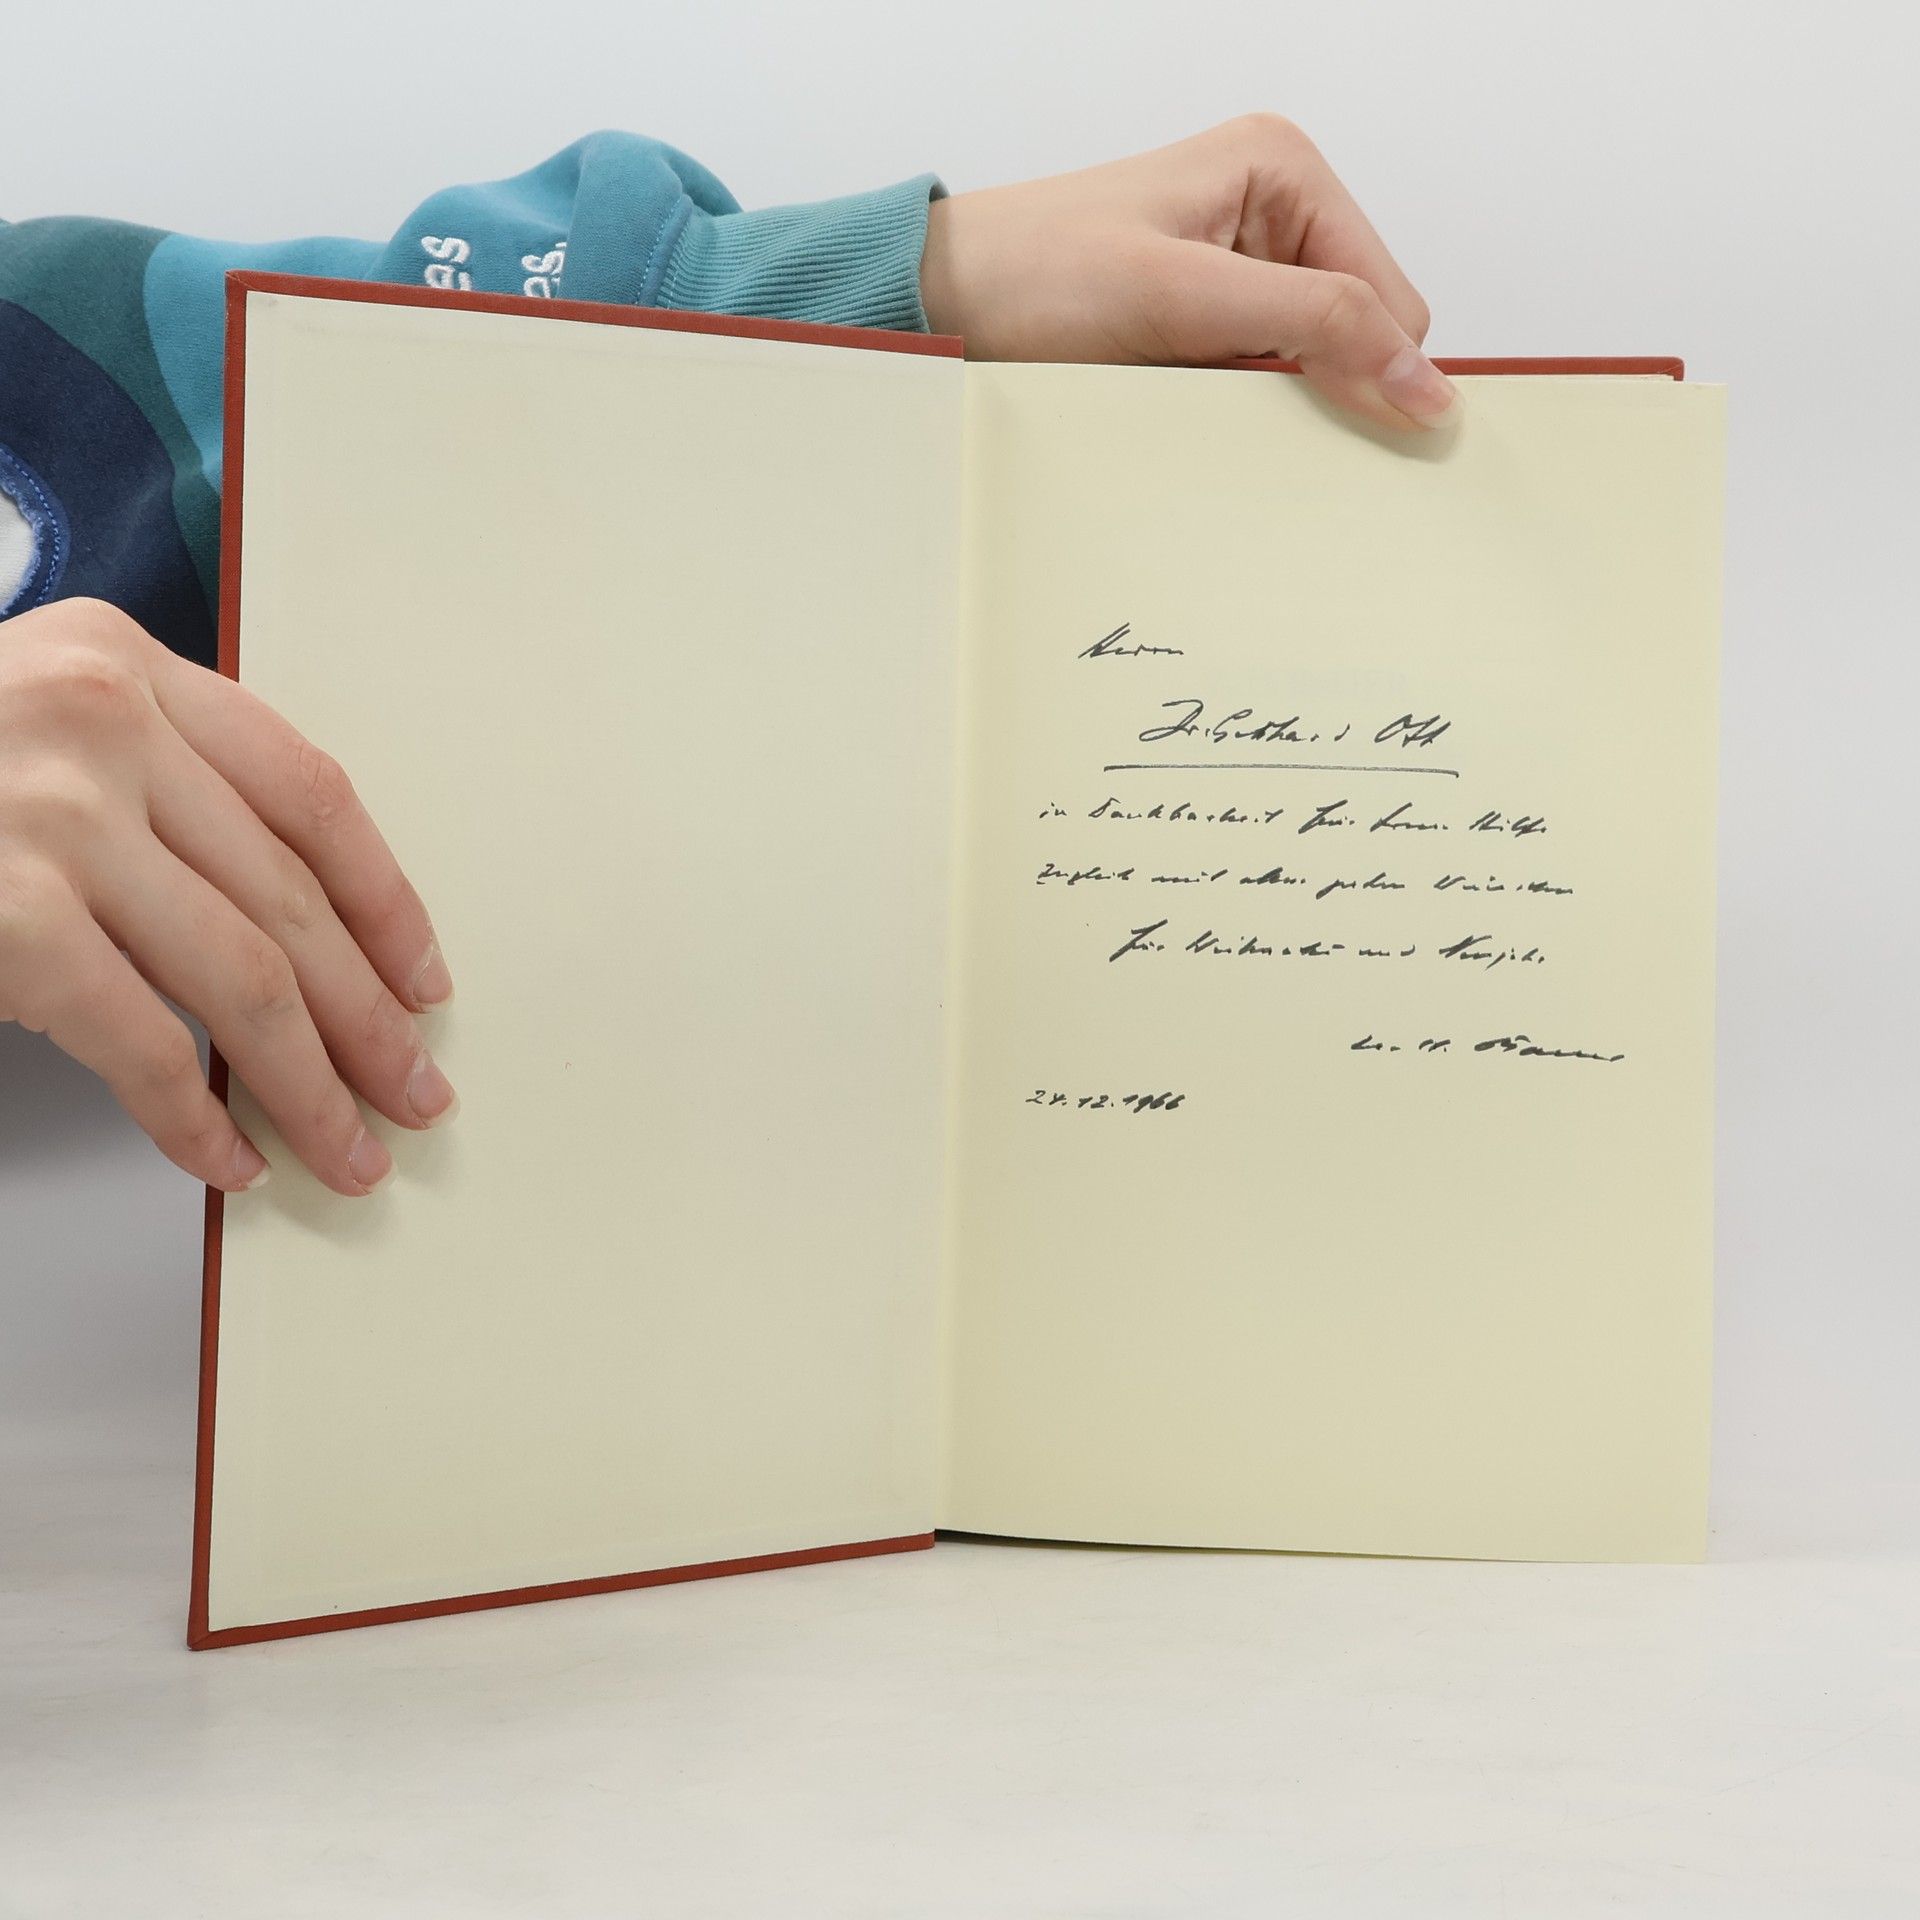 es
es.
Herrn
Dr. Gebhard Ott
in Dankbarkeit für Ihre Hilfe
zugleich mit allen guten Wünschen
für Weihnachten und Neujahr
Dr. H.
24.12.1966